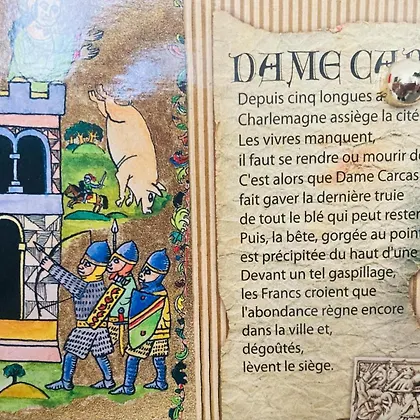 DAME CA
Depuis cinq longues a
Charlemagne assiège la cité
Les vivres manquent,
il faut se rendre ou mourir d
C'est alors que Dame Carcas
fait gaver la dernière truie
de tout le blé qui peut rester
Puis, la bête, gorgée au poin
est précipitée du haut d'une
Devant un tel gaspillage,
les Francs croient que
l'abondance règne encore
dans la ville et,
dégoûtés,
lèvent le siège.